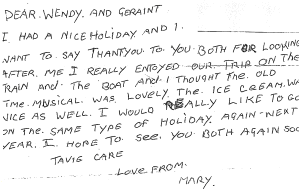 DEAR. WENDY. AND GERAINT.
I HAD A NICE HOLIDAY AND I.
WANT TO SAY THANTYOU TO YOU BOTH FOR LOOKING
AFTER. ME I REALLY ENTOYED OUR TRIP ON THE
TRAIN AND THE BOAT AND I THOUGHT THE OLD
TIME. MUSICAL. WAS. LOVELY THE ICE CREAM. WAS
NICE AS WELL. I WOULD REALLY LIKE TO GO
ON THE SAME TYPE OF HOLIDAY AGAIN NEXT
YEAR. I HOPE TO SEE. YOU BOTH AGAIN SOO
CARE
LOVE FROM.
MARY.